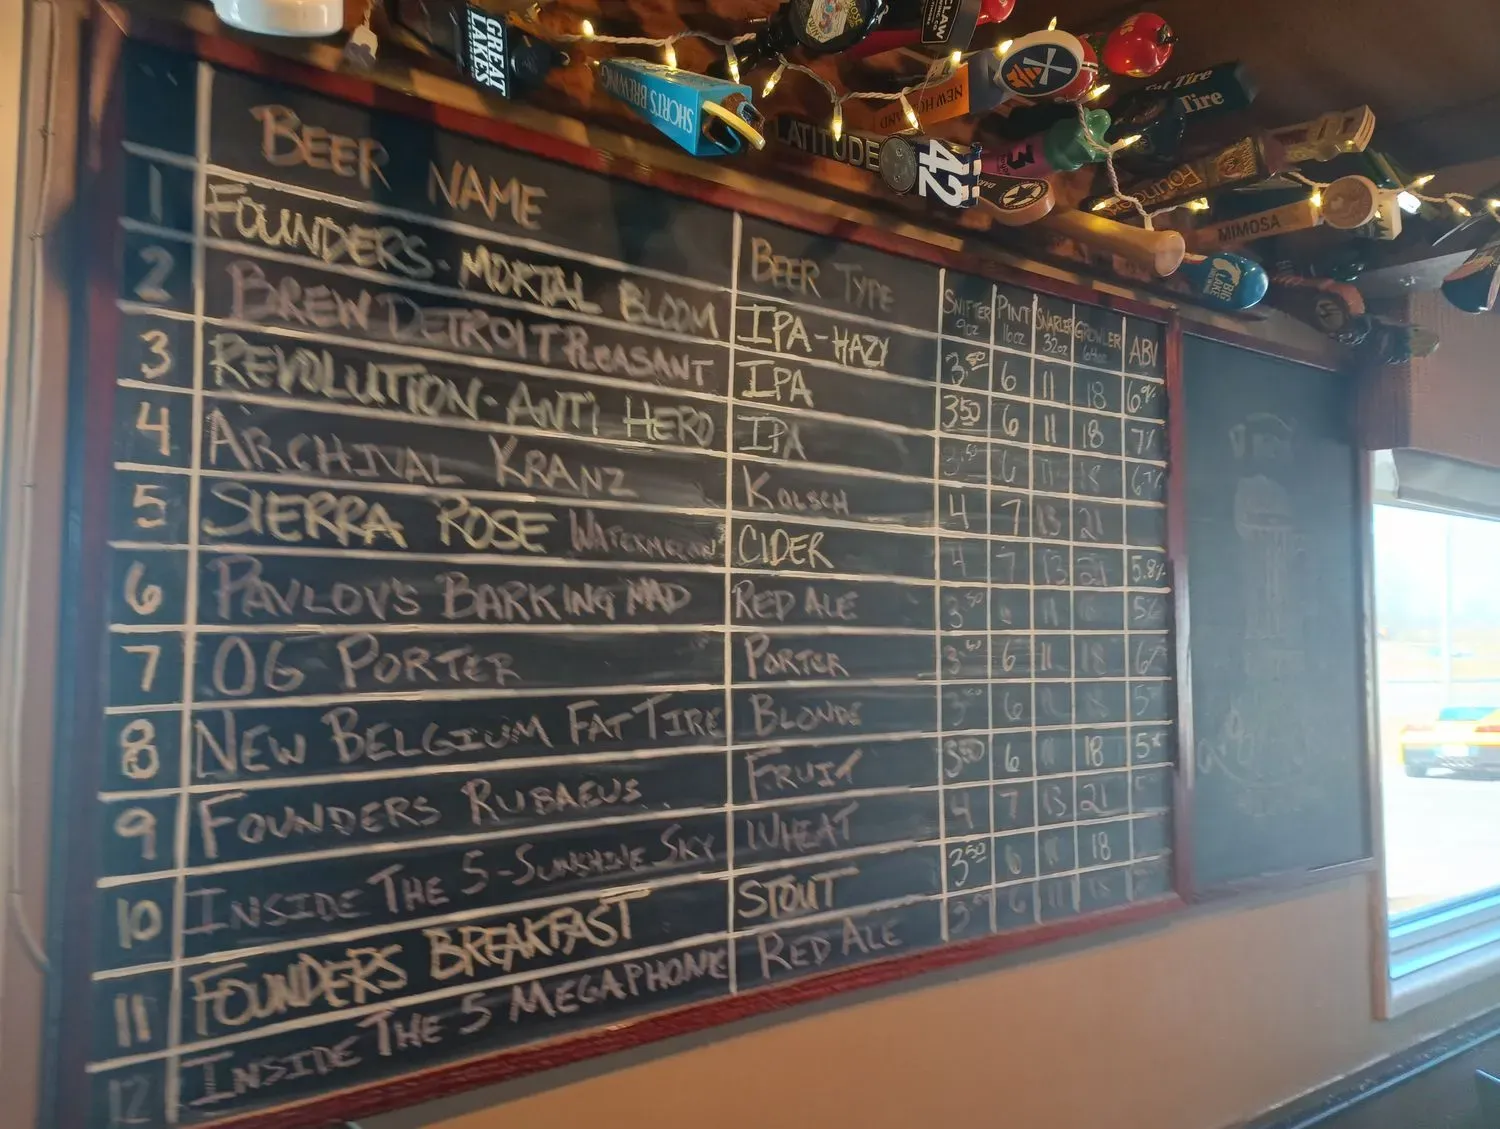 GREAT LAKES
SHORT'S BREWING
LATITUDE 42
CLAW
NEW HOLLAND
Fat Tire
Tire
3
FOUNDERS
MIMOSA
BIG LAKE
BEER NAME BEER TYPE SNIFTER 9oz PINT 16oz SNARLER 32oz GROWLER 64oz ABV
1 FOUNDERS - MORTAL BLOOM IPA-HAZY 3.50 6 11 18
2 BREW DETROIT PLEASANT IPA 3.50 6 11 18 7%
3 REVOLUTION - ANTI HERO IPA 3.50 6 11 18
4 ARCHIVAL KRANZ KOLSCH 4 7 13 21
5 SIERRA ROSE WATERMELON CIDER 4 7 13 21 5.8%
6 PAVLOV'S BARKING MAD RED ALE 3.50 6 11
7 OG PORTER PORTER 3.50 6 11 18 6%
8 NEW BELGIUM FAT TIRE BLONDE 3.50 6
9 FOUNDERS RUBAEUS FRUIT 3.50 6 11 18 5%
10 INSIDE THE 5-SUNSHINE SKY WHEAT 4 7 13 21
11 FOUNDERS BREAKFAST STOUT 3.50 6 11 18
12 INSIDE THE 5 MEGAPHONE RED ALE 6 11